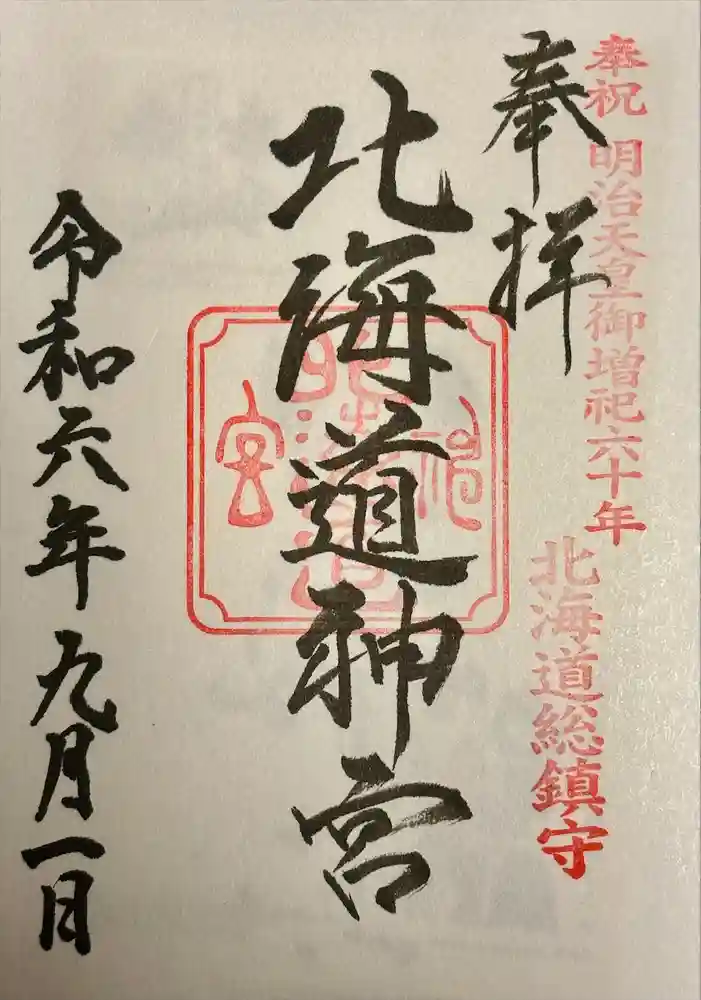 奉祝 明治天皇御増祀六十年
北海道総鎮守
奉拝
北海道神宮
北海道神宮
令和六年九月一日